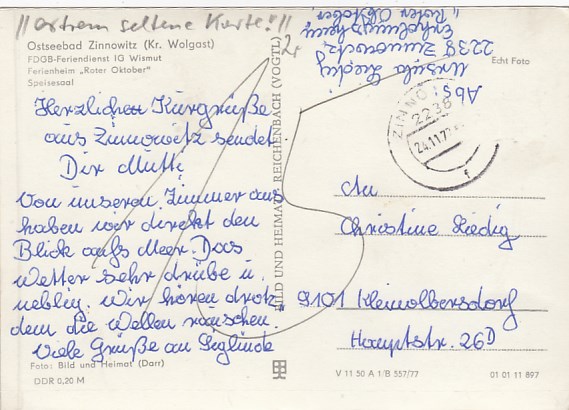 "extrem seltene Karte!"
2,-
Ostseebad Zinnowitz (Kr. Wolgast)
FDGB-Feriendienst IG Wismut
Ferienheim „Roter Oktober"
Speisesaal
Herzlichen Kurgrüße
aus Zinnowitz sendet
Dir Mutti
Von unseren Zimmer aus
haben wir direkt den
Blick aufs Meer. Das
Wetter sehr drübe u.
neblig. Wir hören drotz,
dem die Wellen rauschen.
Viele Grüße an Siglinde
Foto: Bild und Heimat (Darr)
DDR 0,20 M
BILD UND HEIMAT REICHENBACH (VOGTL)
Abs:
Ursula Liedig
2238 Zinnowitz
Erholungsheim
„Roter Oktober"
Echt Foto
ZINNO
2238
24.11.7
f
An
Christine Liedig
9101 Kleinolbersdorf
Hauptstr. 26D
V 11 50 A 1/B 557/77
01 01 11 897